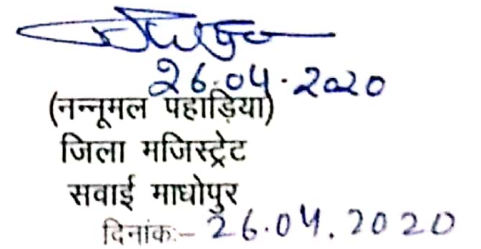 26.04.2020
(नन्नूमल पहाड़िया)
जिला मजिस्ट्रेट
सवाई माधोपुर
दिनांकः– 26.04.2020